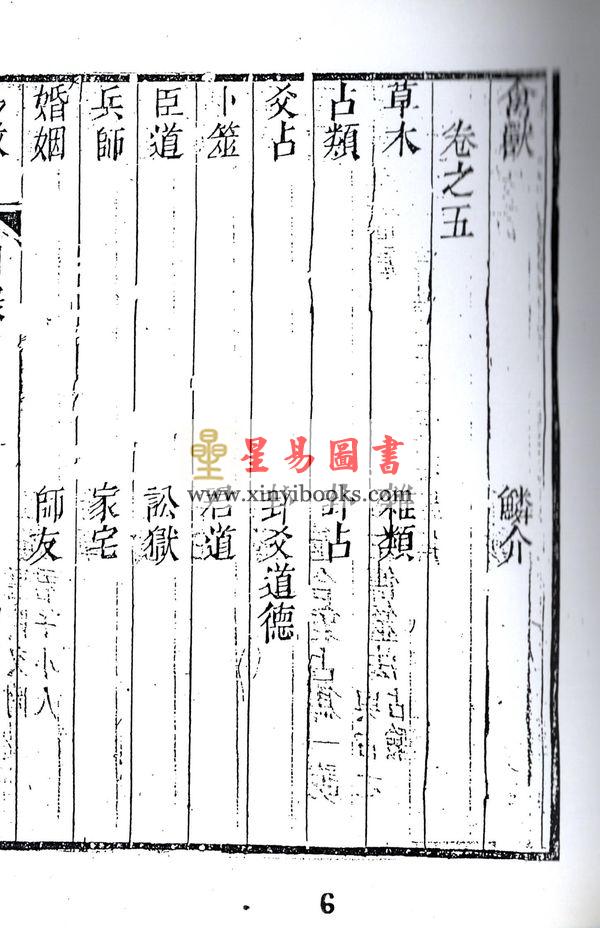 禽獸 鱗介
卷之五
草木 雜類
占類 卦占
爻占 卦爻道德
卜筮 君道
臣道 訟獄
兵師 家宅
婚姻 師友
星易圖書
www.xinyibooks.com
6